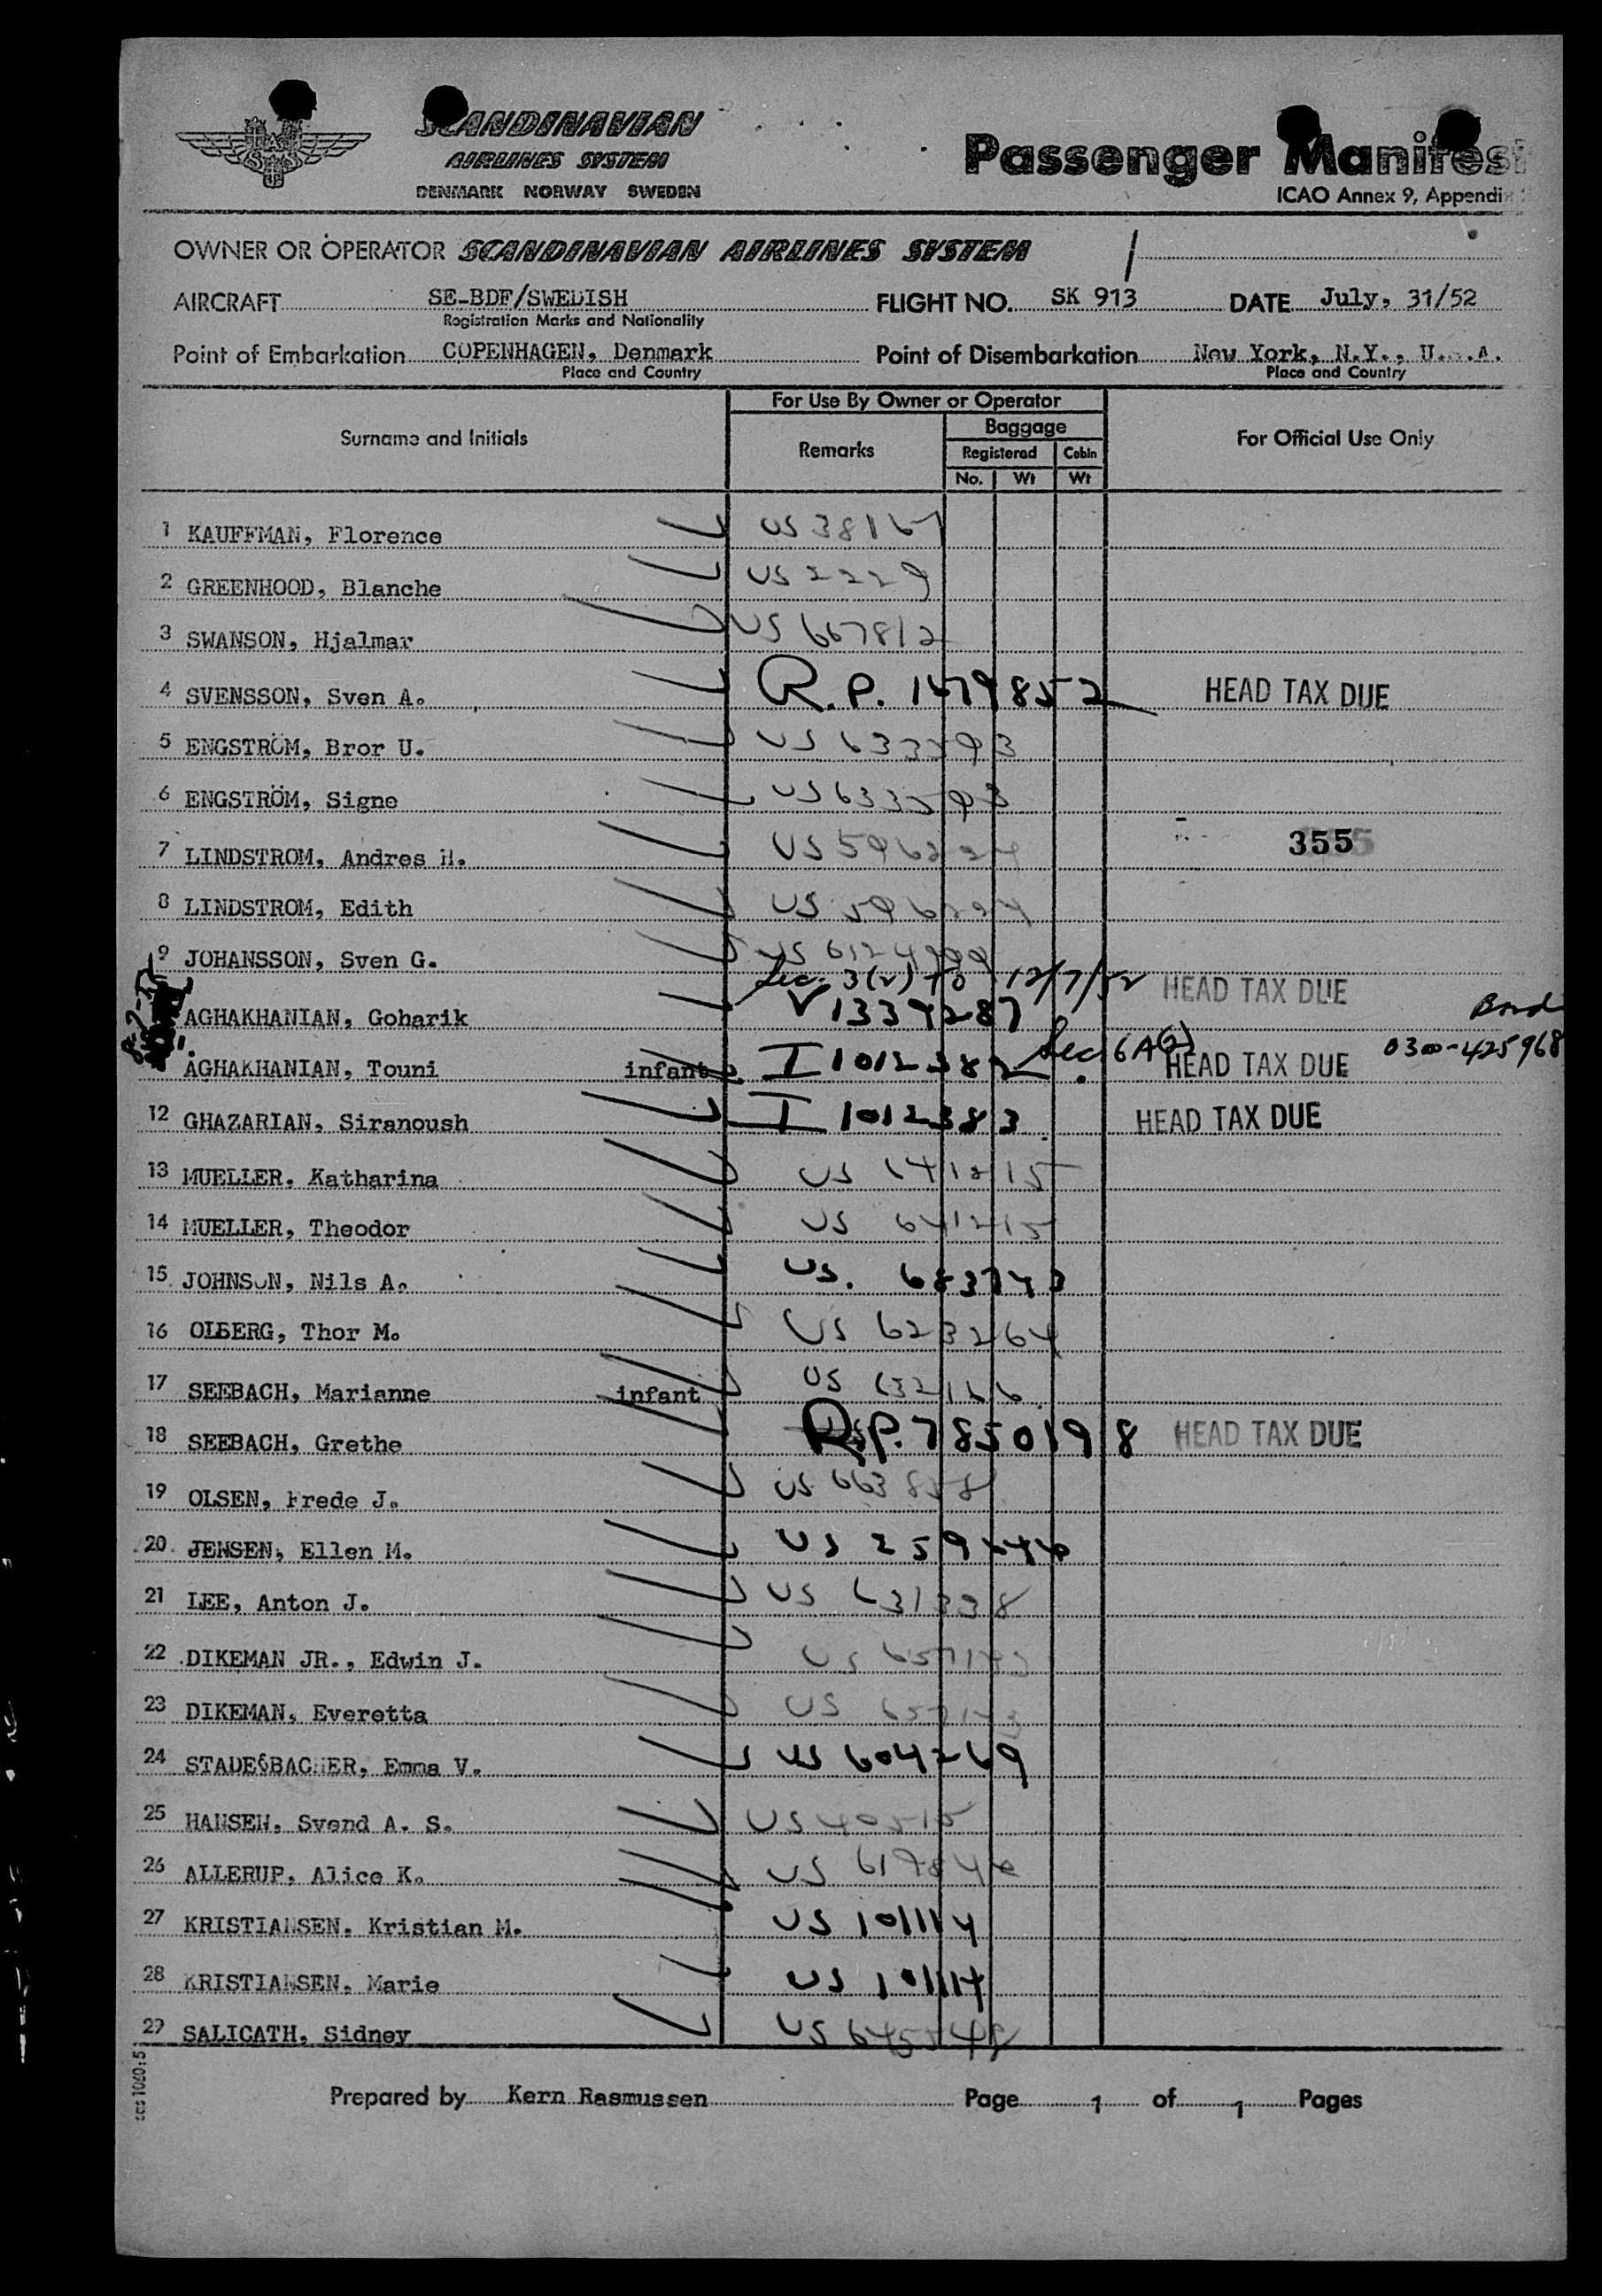 SCANDINAVIAN
AIRLINES SYSTEM
DENMARK NORWAY SWEDEN
Passenger Manifest
ICAO Annex 9, Appendix
OWNER OR OPERATOR SCANDINAVIAN AIRLINES SYSTEM
AIRCRAFT SE-BDF/SWEDISH FLIGHT NO. SK 913 DATE July, 31/52
Registration Marks and Nationality
Point of Embarkation COPENHAGEN, Denmark Point of Disembarkation New York, N.Y., U.S.A.
Place and Country Place and Country
For Use By Owner or Operator
Surname and Initials Remarks Baggage For Official Use Only
Registered Cabin
No. Wt Wt
1 KAUFFMAN, Florence US 38167
2 GREENHOOD, Blanche US 2229
3 SWANSON, Hjalmar US 667812
4 SVENSSON, Sven A. R.P. 1479852 HEAD TAX DUE
5 ENGSTRÖM, Bror U. US 633593
6 ENGSTRÖM, Signe US 633593
7 LINDSTROM, Andres H. US 596224 355
8 LINDSTROM, Edith US 596224
9 JOHANSSON, Sven G. US
Sec. 3(2) to 12/7/52 HEAD TAX DUE
AGHAKHANIAN, Goharik V 1334287 Bond
AGHAKHANIAN, Touni infant I 1012382 Sec 6A(2) HEAD TAX DUE 0300-425968
12 GHAZARIAN, Siranoush I 1012383 HEAD TAX DUE
13 MUELLER, Katharina US 641215
14 MUELLER, Theodor US 641215
15 JOHNSON, Nils A. US. 683743
16 OLBERG, Thor M. US 623264
17 SEEBACH, Marianne infant US 632166
18 SEEBACH, Grethe R.P. 7850198 HEAD TAX DUE
19 OLSEN, Frede J. US 663858
20 JENSEN, Ellen M. US
21 LEE, Anton J. US 631338
22 DIKEMAN JR., Edwin J. US 657143
23 DIKEMAN, Everetta US 657143
24 STADE6BACHER, Emma V. US 604269
25 HANSEN, Svend A. S. US 40515
26 ALLERUP, Alice K. US
27 KRISTIANSEN, Kristian M. US 101114
28 KRISTIANSEN, Marie US 101114
29 SALICATH, Sidney US 645548
Prepared by Kern Rasmussen Page 1 of 1 Pages